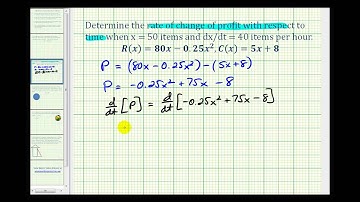 Determine the rate of change of profit with respect to
time when x = 50 items and dx/dt = 40 items per hour.
R(x) = 80x − 0.25x², C(x) = 5x + 8
P = (80x − 0.25x²) − (5x + 8)
P = −0.25x² + 75x − 8
d/dt [P] = d/dt [−0.25x² + 75x − 8]